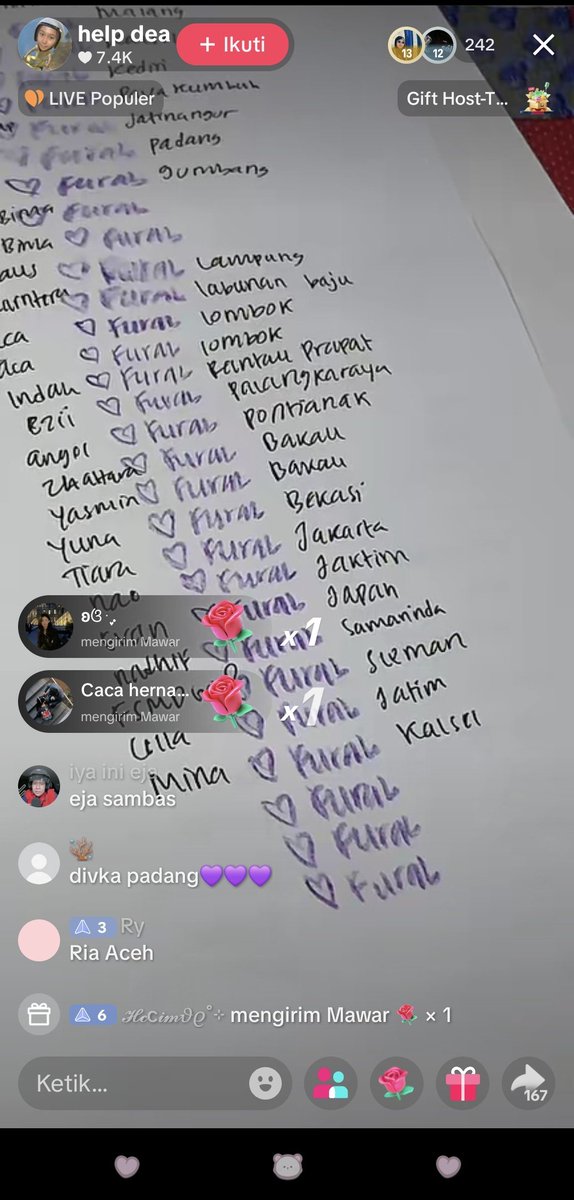 help dea
7.4K
+ Ikuti
13
12
242
LIVE Populer
Gift Host-T...
Malang
Kediri
Payakumbuh
Jatinangor
Padang
♡ Fural gumbang
Bima ♡ Fural
Bima ♡ Fural
♡ Fural Lampung
♡ Fural labunan baju
♡ Fural lombok
♡ Fural lombok
Indah ♡ Fural Rantau Prapat
Ezii ♡ Fural Palangkaraya
angel ♡ Fural Pontianak
♡ Fural Bakau
Yasmin ♡ Fural Bakau
Yuna ♡ Fural Bekasi
Tiara ♡ Fural Jakarta
nao ♡ Fural Jaktim
♡ Fural Japan
♡ Fural Samarinda
♡ Fural Sleman
Cella ♡ Fural Jatim
Mina ♡ Fural Kalsel
♡ Fural
♡ Fural
♡ Fural
mengirim Mawar
x1
Caca herna...
mengirim Mawar
x1
iya ini eja
eja sambas
divka padang💜💜💜
3 Ry
Ria Aceh
6 mengirim Mawar 🌹 × 1
Ketik...
167